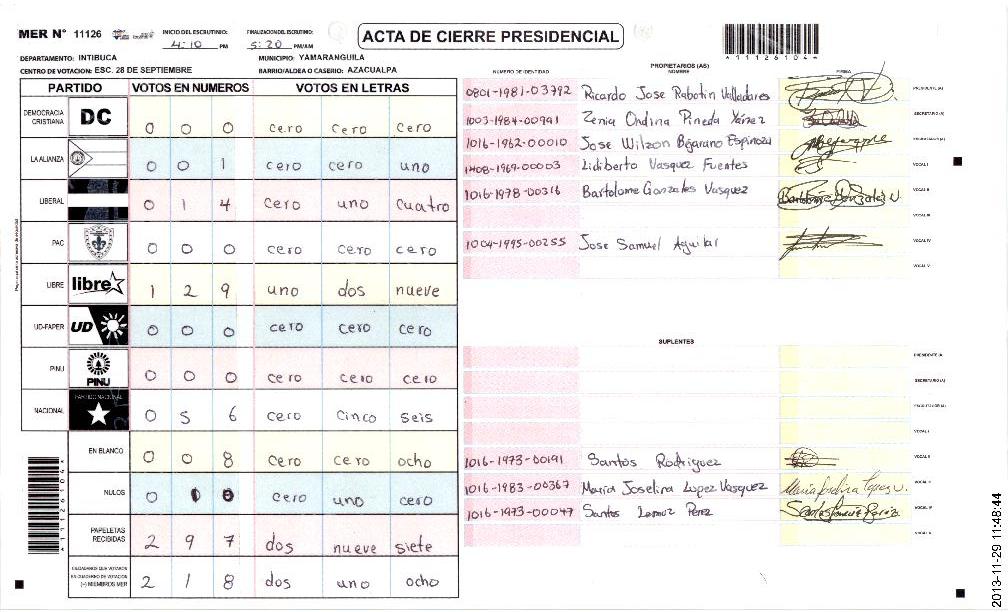 MER N° 11126
INICIO DEL ESCRUTINIO: 4:10 PM
FINALIZACION DEL ESCRUTINIO: 5:20 PM/AM
ACTA DE CIERRE PRESIDENCIAL
*11126104*
DEPARTAMENTO: INTIBUCA
MUNICIPIO: YAMARANGUILA
CENTRO DE VOTACION: ESC. 28 DE SEPTIEMBRE
BARRIO/ALDEA O CASERIO: AZACUALPA
PARTIDO VOTOS EN NUMEROS VOTOS EN LETRAS
DEMOCRACIA CRISTIANA DC 0 0 0 cero cero cero
LA ALIANZA 0 0 1 cero cero uno
LIBERAL 0 1 4 cero uno cuatro
PAC 0 0 0 cero cero cero
LIBRE libre 1 2 9 uno dos nueve
UD-FAPER UD 0 0 0 cero cero cero
PINU PINU 0 0 0 cero cero cero
NACIONAL PARTIDO NACIONAL 0 5 6 cero cinco seis
EN BLANCO 0 0 8 cero cero ocho
NULOS 0 1 0 cero uno cero
PAPELETAS RECIBIDAS 2 9 7 dos nueve siete
CIUDADANOS QUE VOTARON EN CUADERNO DE VOTACION (+) MIEMBROS MER 2 1 8 dos uno ocho
*11126104*
PROPIETARIOS (AS)
NUMERO DE IDENTIDAD NOMBRE FIRMA
0801-1981-03792 Ricardo Jose Rabotin Valladares PRESIDENTE (A)
1003-1984-00941 Zenia Ondina Pineda SECRETARIO (A)
1016-1962-00010 Jose Wilson Bejarano Espinoza ESCRUTADOR (A)
1408-1969-00003 Lidiberto Vasquez Fuentes VOCAL I
1016-1978-00316 Bartolome Gonzales Vasquez Bartolome Gonzales V VOCAL II
VOCAL III
1004-1995-00255 Jose Samuel Aguilar VOCAL IV
VOCAL V
SUPLENTES
PRESIDENTE (A)
SECRETARIO (A)
ESCRUTADOR (A)
VOCAL I
1016-1973-00191 Santos Rodriguez VOCAL II
1016-1983-00367 Maria Joselina Lopez Vasquez Maria Joselina Lopez V. VOCAL III
1016-1973-00047 Santos Lemuz Perez VOCAL IV
VOCAL V
2013-11-29 11:48:44